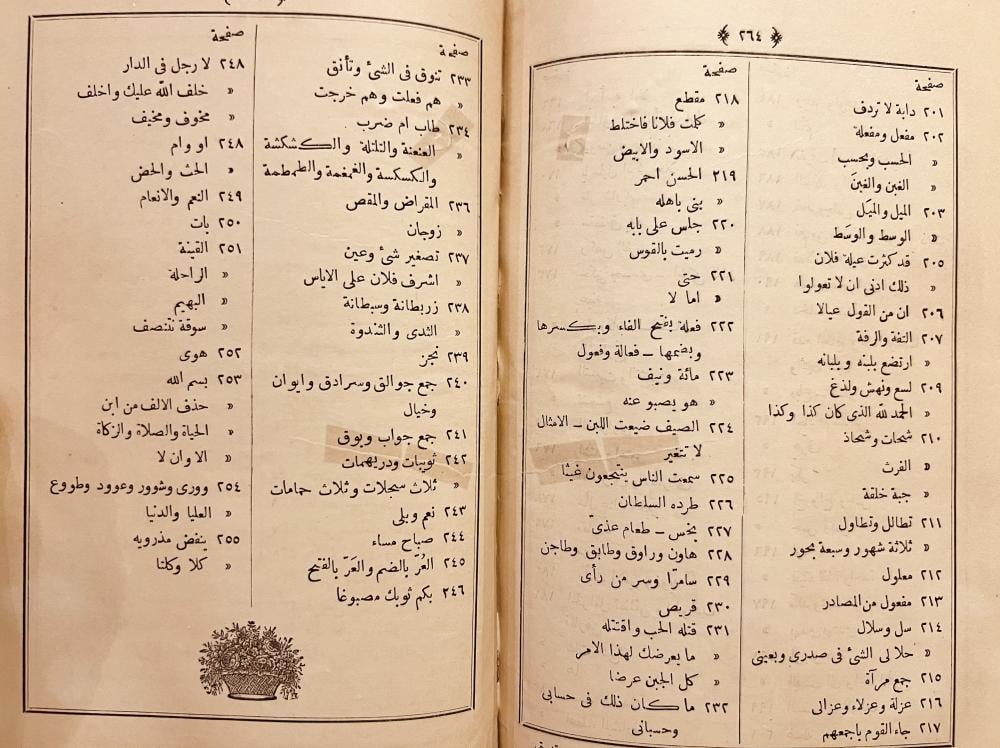 ﴿ ٢٦٤ ﴾
صفحة
٢٠١ دابة لا تردف
٢٠٢ مفعل ومفعلة
« الحسب وبحسب
« الغبن والغبَن
٢٠٣ الميل والميَل
« الوسط والوسَط
٢٠٥ قد كثرت عيلة فلان
« ذلك ادنى ان لا تعولوا
٢٠٦ ان من القول عيالا
٢٠٧ التفة والرفة
« ارتضع بلبنه وبلبانه
٢٠٩ لسع ونهش ولدغ
« الحمد لله الذى كان كذا وكذا
٢١٠ شحات وشحاذ
« الفرث
« جبة خلقة
٢١١ تطالل وتطاول
« ثلاثة شهور وسبعة بحور
٢١٢ معلول
٢١٣ مفعول من المصادر
٢١٤ سل وسلال
« حلا لى الشئ فى صدرى وبعينى
٢١٥ جمع مرآة
٢١٦ عزلة وعزلاء وعزالى
٢١٧ جاء القوم باجمعهم
صفحة
٢١٨ مقطع
« كلمت فلانا فاختلط
« الاسود والابيض
٢١٩ الحسن احمر
« بنى باهله
٢٢٠ جلس على بابه
« رميت بالقوس
٢٢١ حتى
« اما لا
٢٢٢ فعلة بفتح الفاء وبكسرها
وبضمها – فعالة وفعول
٢٢٣ مائة ونيف
« هو يصبو عنه
٢٢٤ الصيف ضيعت اللبن – الامثال
لا تتغير
٢٢٥ سمعت الناس ينتجعون غيثا
٢٢٦ طرده السلطان
٢٢٧ بخس – طعام عذىّ
٢٢٨ هاون وراوق وطابق وطاجن
٢٢٩ سامرّا وسر من رأى
٢٣٠ قريص
٢٣١ قتله الحب واقتتله
« ما يعرضك لهذا الامر
« كل الجبن عرضا
٢٣٢ ما كان ذلك فى حسابى
وحسبانى
صفحة
٢٣٣ تنوق فى الشئ وتأنق
« هم فعلت وهم خرجت
٢٣٤ طاب ام ضرب
« العنعنة والتلتلة والكشكشة
والكسكسة والغمغمة والطمطمة
٢٣٦ المقراض والمقص
« زوجان
٢٣٧ تصغير شئ وعين
« اشرف فلان على الاياس
٢٣٨ زربطانة وسبطانة
« الثدى والثندوة
٢٣٩ نجز
٢٤٠ جمع جوالق وسرادق وايوان
وخيال
٢٤١ جمع جواب وبوق
٢٤٢ ثويبات ودريهمات
« ثلاث سجلات وثلاث حمامات
٢٤٣ نعم وبلى
٢٤٤ صباح مساء
٢٤٥ العُرّ بالضم والعَرّ بالفتح
٢٤٦ بكم ثوبك مصبوغا
صفحة
٢٤٨ لا رجل فى الدار
« خلف الله عليك واخلف
« مخوف ومخيف
٢٤٨ او وام
« الحث والحض
٢٤٩ النعم والانعام
٢٥٠ بات
٢٥١ القينة
« الراحلة
« البهيم
« سوقة نتنصف
٢٥٢ هوى
٢٥٣ بسم الله
« حذف الالف من ابن
« الحياة والصلاة والزكاة
« الا وان لا
٢٥٤ وورى وشوور وعوود وطووع
« العليا والدنيا
٢٥٥ ينفض مذرويه
« كلا وكلتا